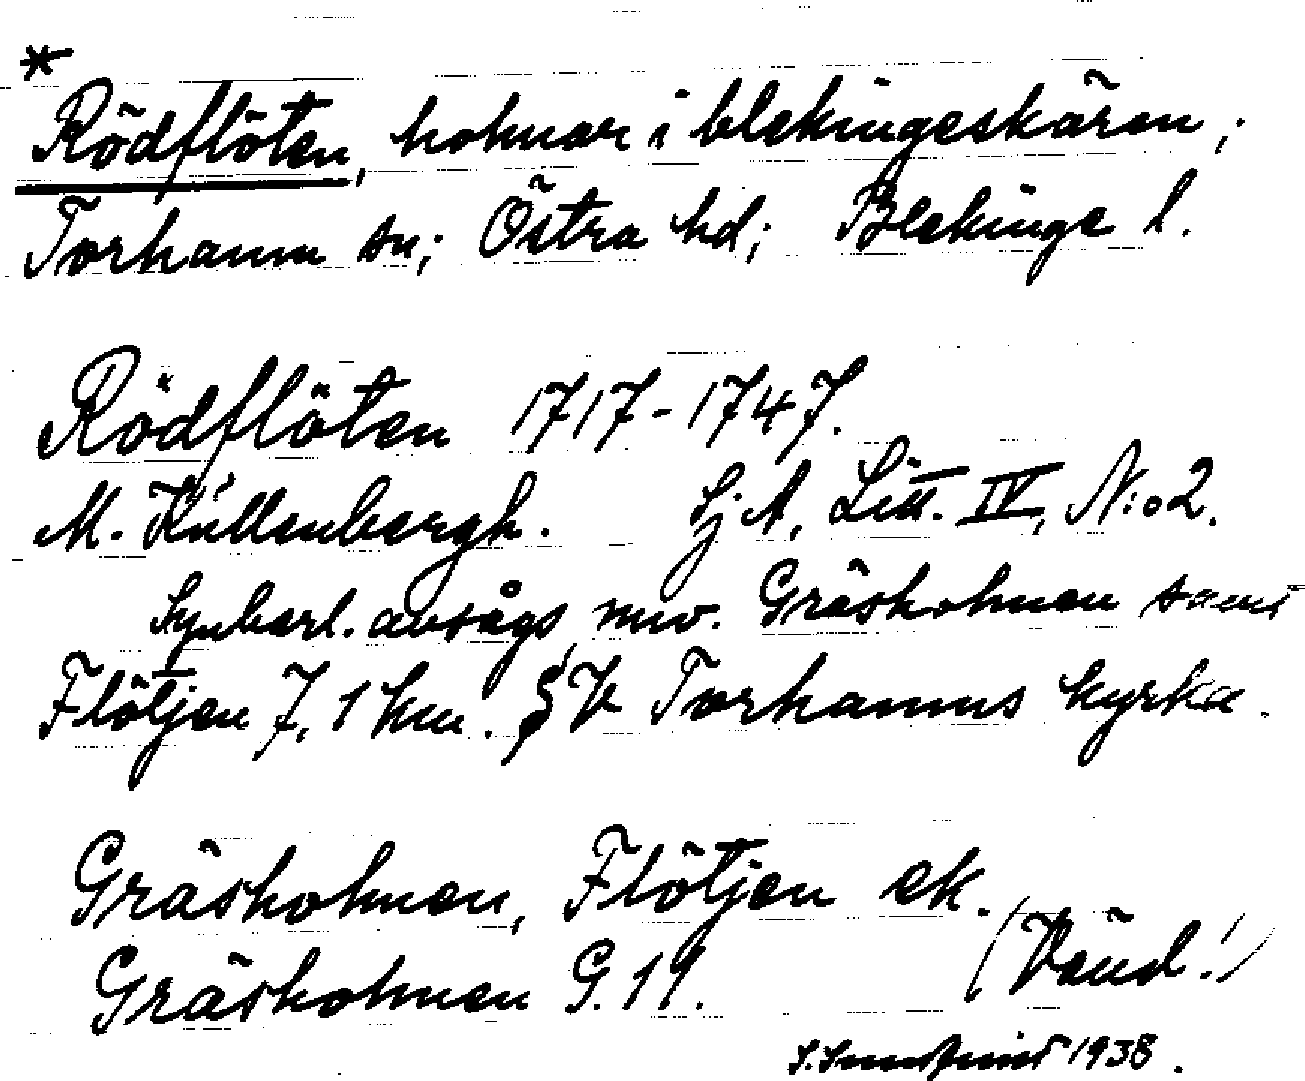 * Rödflöten, holmar i blekingeskären;
Torhamn sn; Östra hd; Blekinge l.
Rödflöten 1717-1747.
M. Küllenbergh. Sj A, Litt. IV, N:o 2.
Synbarl. avsågs nuv. Gräsholmen samt
Flötjen 7,1 km. SV Torhamns kyrka.
Gräsholmen, Flötjen ek.
Gräsholmen G. 19.
(Vänd!)
1938.